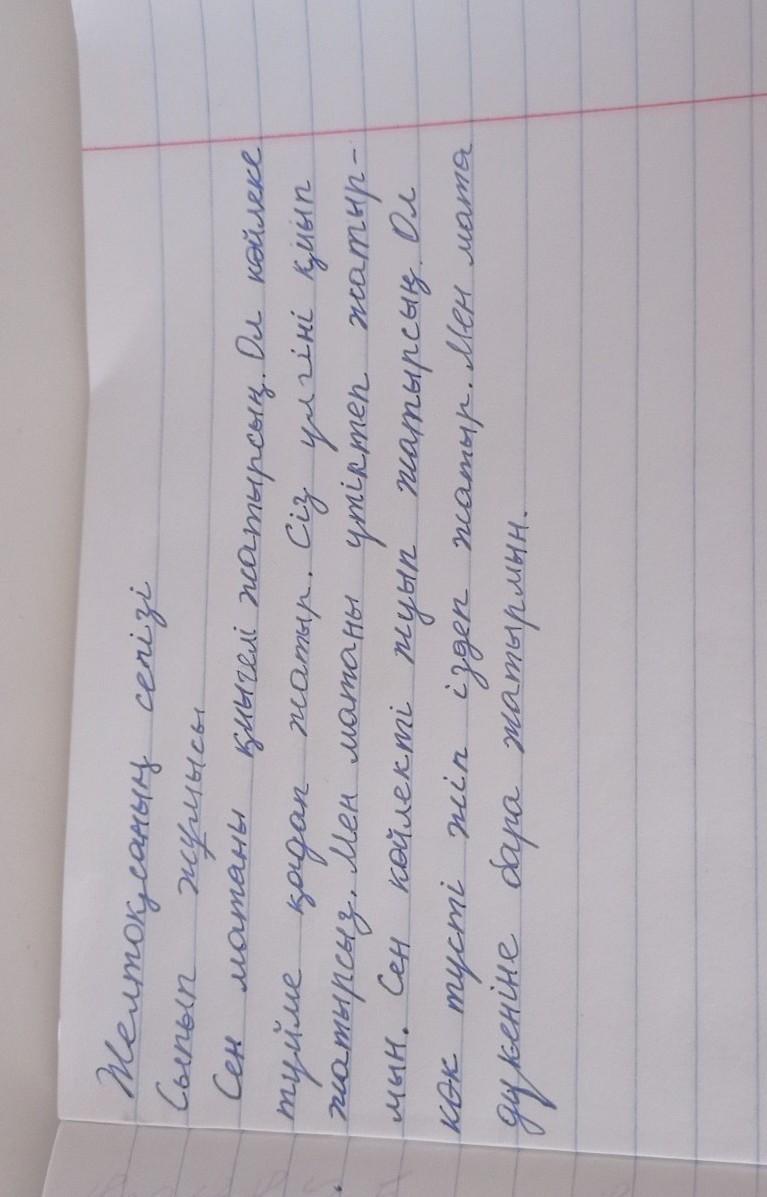 Желтоқсанның сегізі
Сыпып жұмысы
Сен матаны қиыгелі жатырсың. Ол көйлеке
түйме қадап жатыр. Сіз үлгіні қиып
жатырсыз. Мен матаны үтіктеп жатыр-
мын. Сен көйлекті жуып жатырсың. Ол
көк түсті жіп іздеп жатыр. Мен мата
дүкеніне бара жатырмын.